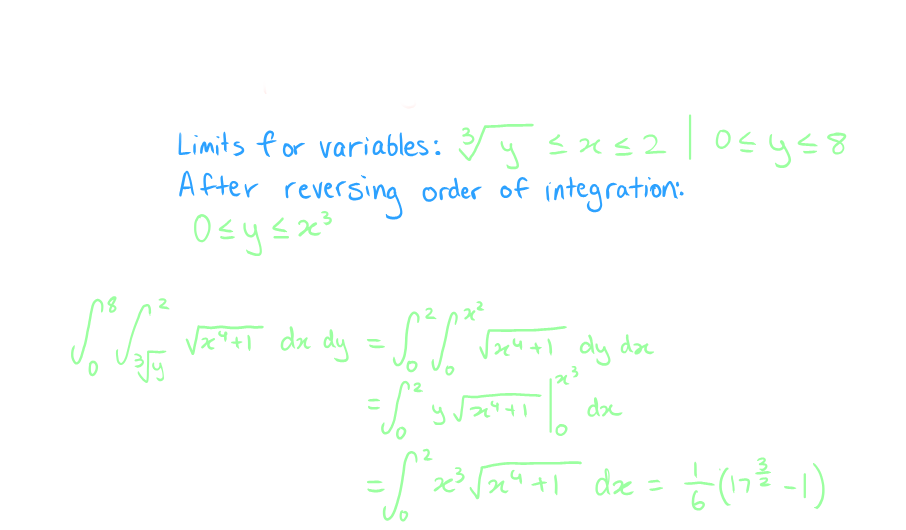 Limits for variables: ∛y ≤ x ≤ 2 | 0 ≤ y ≤ 8
After reversing order of integration:
0 ≤ y ≤ x³
∫₀⁸ ∫_{∛y}² √(x⁴+1) dx dy = ∫₀² ∫₀^{x²} √(x⁴+1) dy dx
= ∫₀² y√(x⁴+1) |₀^{x³} dx
= ∫₀² x³√(x⁴+1) dx = 1/6 (17^{3/2} - 1)